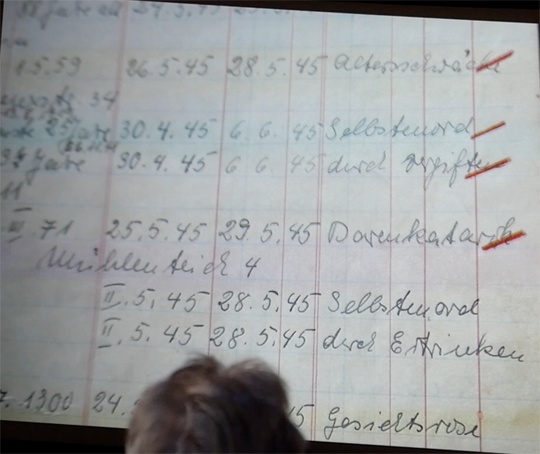 Jahre
1.5.59 26.5.45 28.5.45 Altersschwäche
54
25 Jahre 30.4.45 6.6.45 Selbstmord
Jahre 30.4.45 6 6 45 durch Vergiften
11
III 71 25.5.45 29.5.45 Darmkatarrh
Mühlenteich 4
II. 5. 45 28.5.45 Selbstmord
II. 5. 45 28.5.45 durch Ertrinken
1300 24. 45 Gesichtsrose